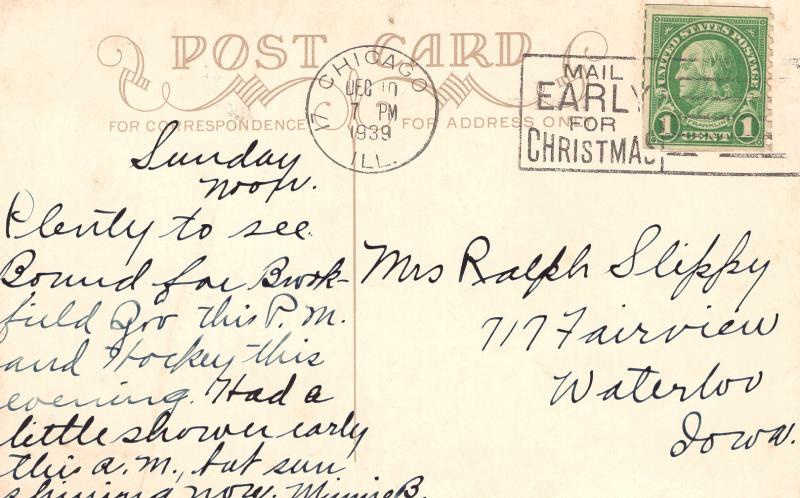 POST CARD
FOR CORRESPONDENCE
FOR ADDRESS ONLY
CHICAGO 17
DEC 10
7 PM
1939
ILL.
MAIL
EARLY
FOR
CHRISTMAS
UNITED STATES POSTAGE
FRANKLIN
1 CENT 1
Sunday
noon.
Plenty to see.
Bound for Brook-
field Zoo this P.M.
and Hockey this
evening. Had a
little shower early
this a.m., but sun
shining now. Minnie B.
Mrs Ralph Slippy
717 Fairview
Waterloo
Iowa.